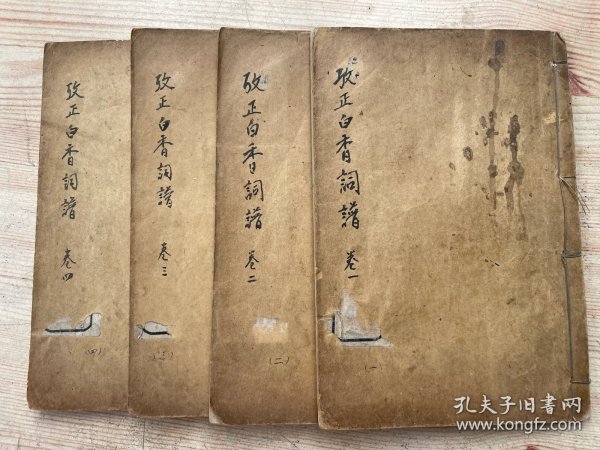 攷正白香詞譜 卷一
(一)
攷正白香詞譜 卷二
(二)
攷正白香詞譜 卷三
(三)
攷正白香詞譜 卷四
(四)
孔夫子旧書网